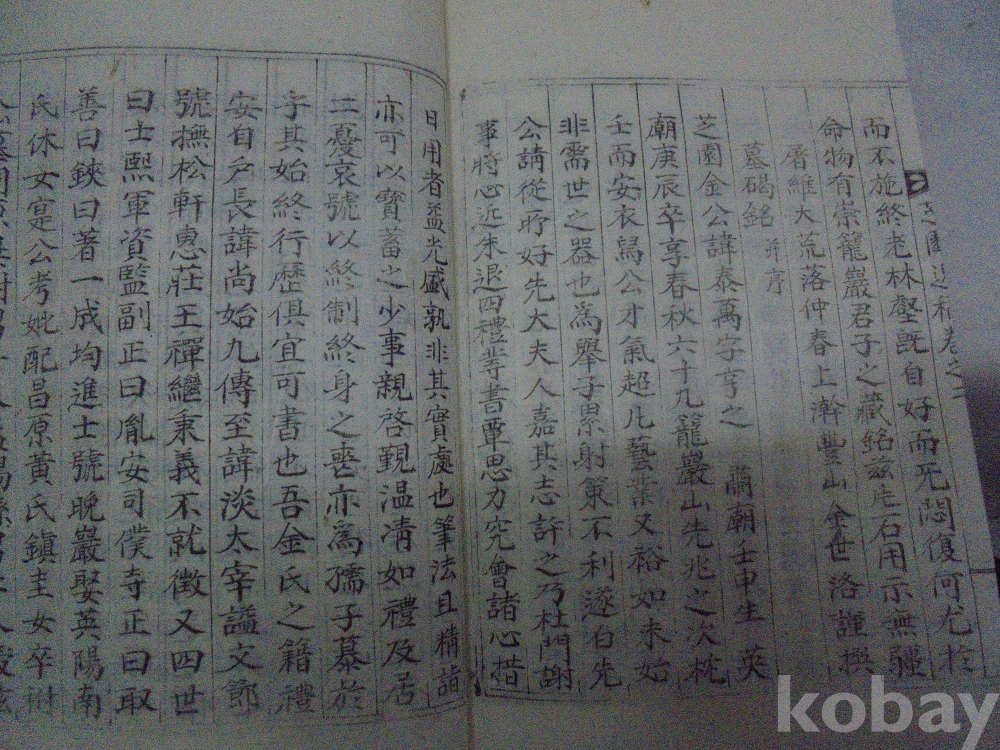 芝園逸稿卷之二
而不施終老林壑旣自好而无悶復何尤於
命物有崇籠巖君子之藏銘玆片石用示無疆
曆維大荒落仲春上澣豐山金世洛謹撰
墓碣銘 幷序
芝園金公諱泰萬字亨之 肅廟壬申生 英
廟庚辰卒享春秋六十九籠巖山先兆之次枕
壬而安衣舃公才氣超凡藝業又裕如未始
非需世之器也爲擧子累射策不利遂白先
公請從所好先大夫人嘉其志許之乃杜門謝
事將心近朱退四禮等書覃思力究會諸心措
日用者盖光盛孰非其實處也筆法且精詣
亦可以寶蓄之少事親啓覲温凊如禮及居
二憂哀號以終制終身之喪亦爲孺子慕於
乎其始終行歷俱宜可書也吾金氏之籍禮
安自戶長諱尚始九傳至諱淡太宰謚文節
號撫松軒惠莊王禪繼秉義不就徵又四世
曰士熙軍資監副正曰胤安司僕寺正曰取
善曰鋏曰著一成均進士號晩巖娶英陽南
氏休女寔公考妣配昌原黃氏鎭圭女卒祔
公墓同
kobay